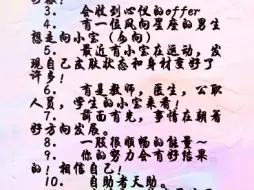 3. 会收到心仪的offer
4. 有一位风向星座的男生
想走向小宝（多向）
5. 最近有小宝在运动，发
现自己皮肤状态和身材变好了
许多！
6. 有是教师，医生，公职
人员，学生的小宝来看！
7. 前面有光，事情在朝着
好方向发展。
8. 一股很顺畅的能量～
9. 你的努力会有好结果
的！相信自己！
10. 自助者天助。